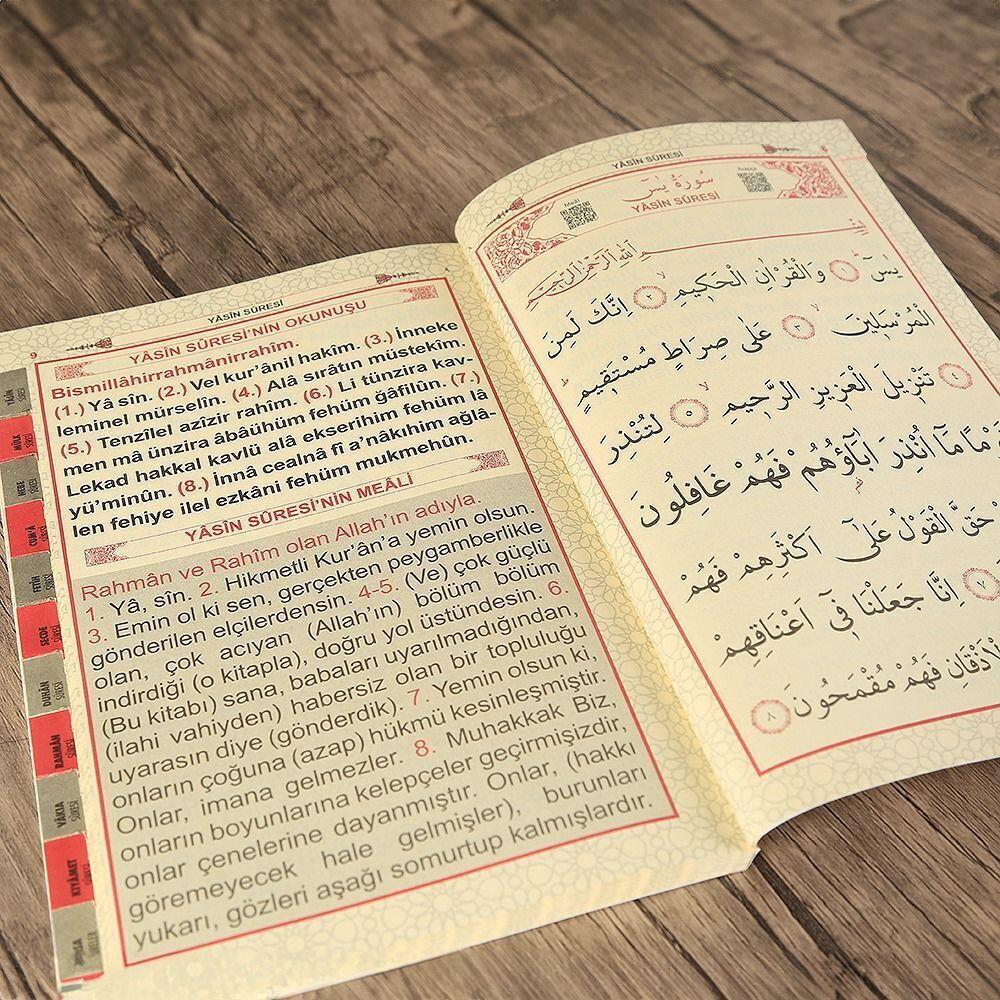 YÂSÎN SÛRESİ
9
YÂSÎN SÛRESİ'NİN OKUNUŞU
Bismillâhirrahmânirrahîm.
(1.) Yâ sîn. (2.) Vel kur'ânil hakîm. (3.) İnneke
leminel mürselîn. (4.) Alâ sırâtın müstekîm.
(5.) Tenzîlel azîzir rahîm. (6.) Li tünzira kav-
men mâ ünzira âbâühüm fehüm ğâfilûn. (7.)
Lekad hakkal kavlü alâ ekserihim fehüm lâ
yü'minûn. (8.) İnnâ cealnâ fî a'nâkıhim ağlâ-
len fehiye ilel ezkâni fehüm mukmehûn.
YÂSÎN SÛRESİ'NİN MEÂLİ
Rahmân ve Rahîm olan Allah'ın adıyla.
1. Yâ, sîn. 2. Hikmetli Kur'ân'a yemin olsun.
3. Emin ol ki sen, gerçekten peygamberlikle
gönderilen elçilerdensin. 4-5. (Ve) çok güçlü
olan, çok acıyan (Allah'ın) bölüm bölüm
indirdiği (o kitapla), doğru yol üstündesin. 6.
(Bu kitabı) sana, babaları uyarılmadığından,
(ilahi vahiyden) habersiz olan bir topluluğu
uyarasın diye (gönderdik). 7. Yemin olsun ki,
onların çoğuna (azap) hükmü kesinleşmiştir.
Onlar, imana gelmezler. 8. Muhakkak Biz,
onların boyunlarına kelepçeler geçirmişizdir,
onlar çenelerine dayanmıştır. Onlar, (hakkı
göremeyecek hale gelmişler), burunları
yukarı, gözleri aşağı somurtup kalmışlardır.
YÂSİN SÛRESİ
MÜLK SÛRESİ
NEBE SÛRESİ
CUM'A SÛRESİ
FETİH SÛRESİ
SECDE SÛRESİ
DUHÂN SÛRESİ
RAHMÂN SÛRESİ
VÂKIA SÛRESİ
KIYÂMET SÛRESİ
KISA SÛRELER
YÂSÎN SÛRESİ
Meâli
سُورَةُ يٰسٓ
YÂSÎN SÛRESİ
Arapça
بِسْمِ اللّٰهِ الرَّحْمٰنِ الرَّحِيمِ
يٰسٓ ١ وَالْقُرْاٰنِ الْحَكِيمِ ٢ اِنَّكَ لَمِنَ
الْمُرْسَلِينَ ٣ عَلٰى صِرَاطٍ مُسْتَقِيمٍ
تَنْزِيلَ الْعَزِيزِ الرَّحِيمِ ٥ لِتُنْذِرَ
مَا اُنْذِرَ اٰبَٓاؤُهُمْ فَهُمْ غَافِلُونَ
حَقَّ الْقَوْلُ عَلٰٓى اَكْثَرِهِمْ فَهُمْ
٧ اِنَّا جَعَلْنَا فٓى اَعْنَاقِهِمْ
الْاَذْقَانِ فَهُمْ مُقْمَحُونَ ٨